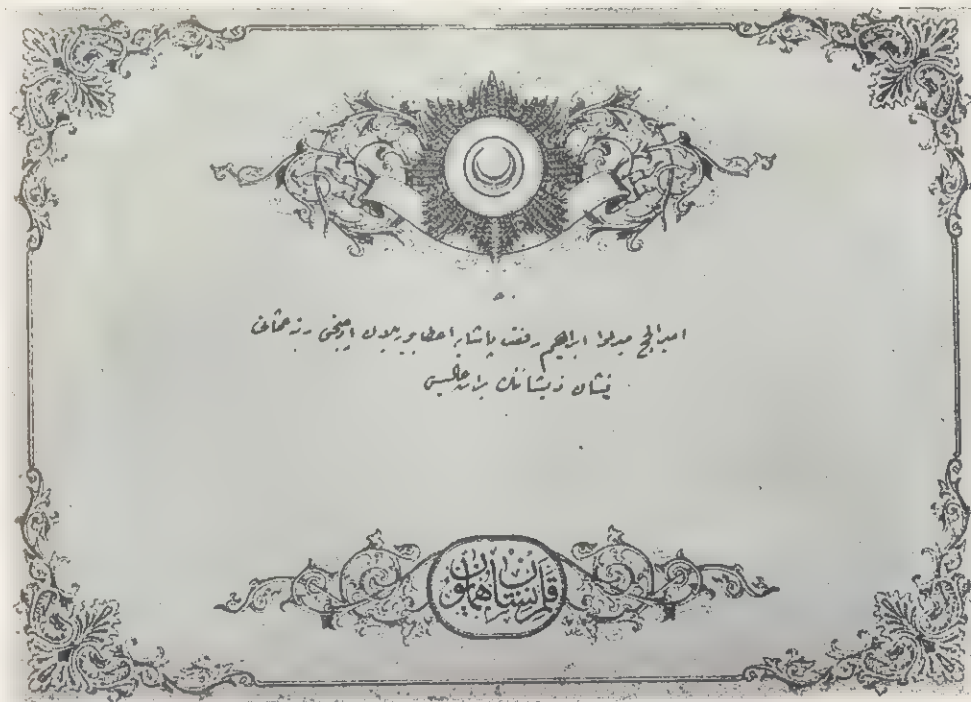 امير الحج ميرلوا ابراهيم رفعت پاشايه اعطا بويريلان ايكنجى رتبه عثمانى
نشان ذيشاننك براتعاليسى
قلم نشان همايون